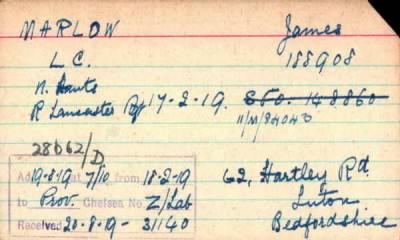 MARLOW James
L.C. 188908
N. Hants
R Lancaster Rgt 17-2-19. S Fo. 148860
11/M/84040
28662/D
19-8-19 7/10 from 18-2-19 62, Hartley Rd.
to Prov. Chelsea No. Z/Lab Luton
Received 20-8-19- 31140 Bedfordshire